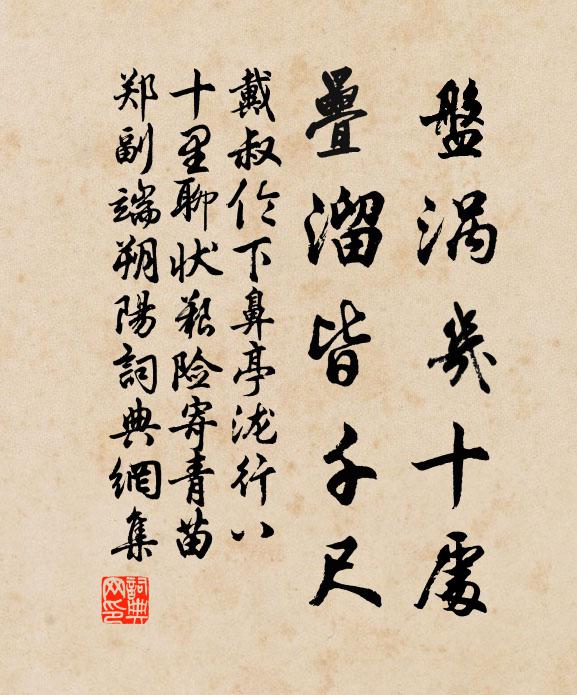 盤涡幾十處
疊溜皆千尺
戴叔伦下鼻亭泷行八
十里聊状艱险寄青苗
郑副端朔陽詞典網集
詞典网印